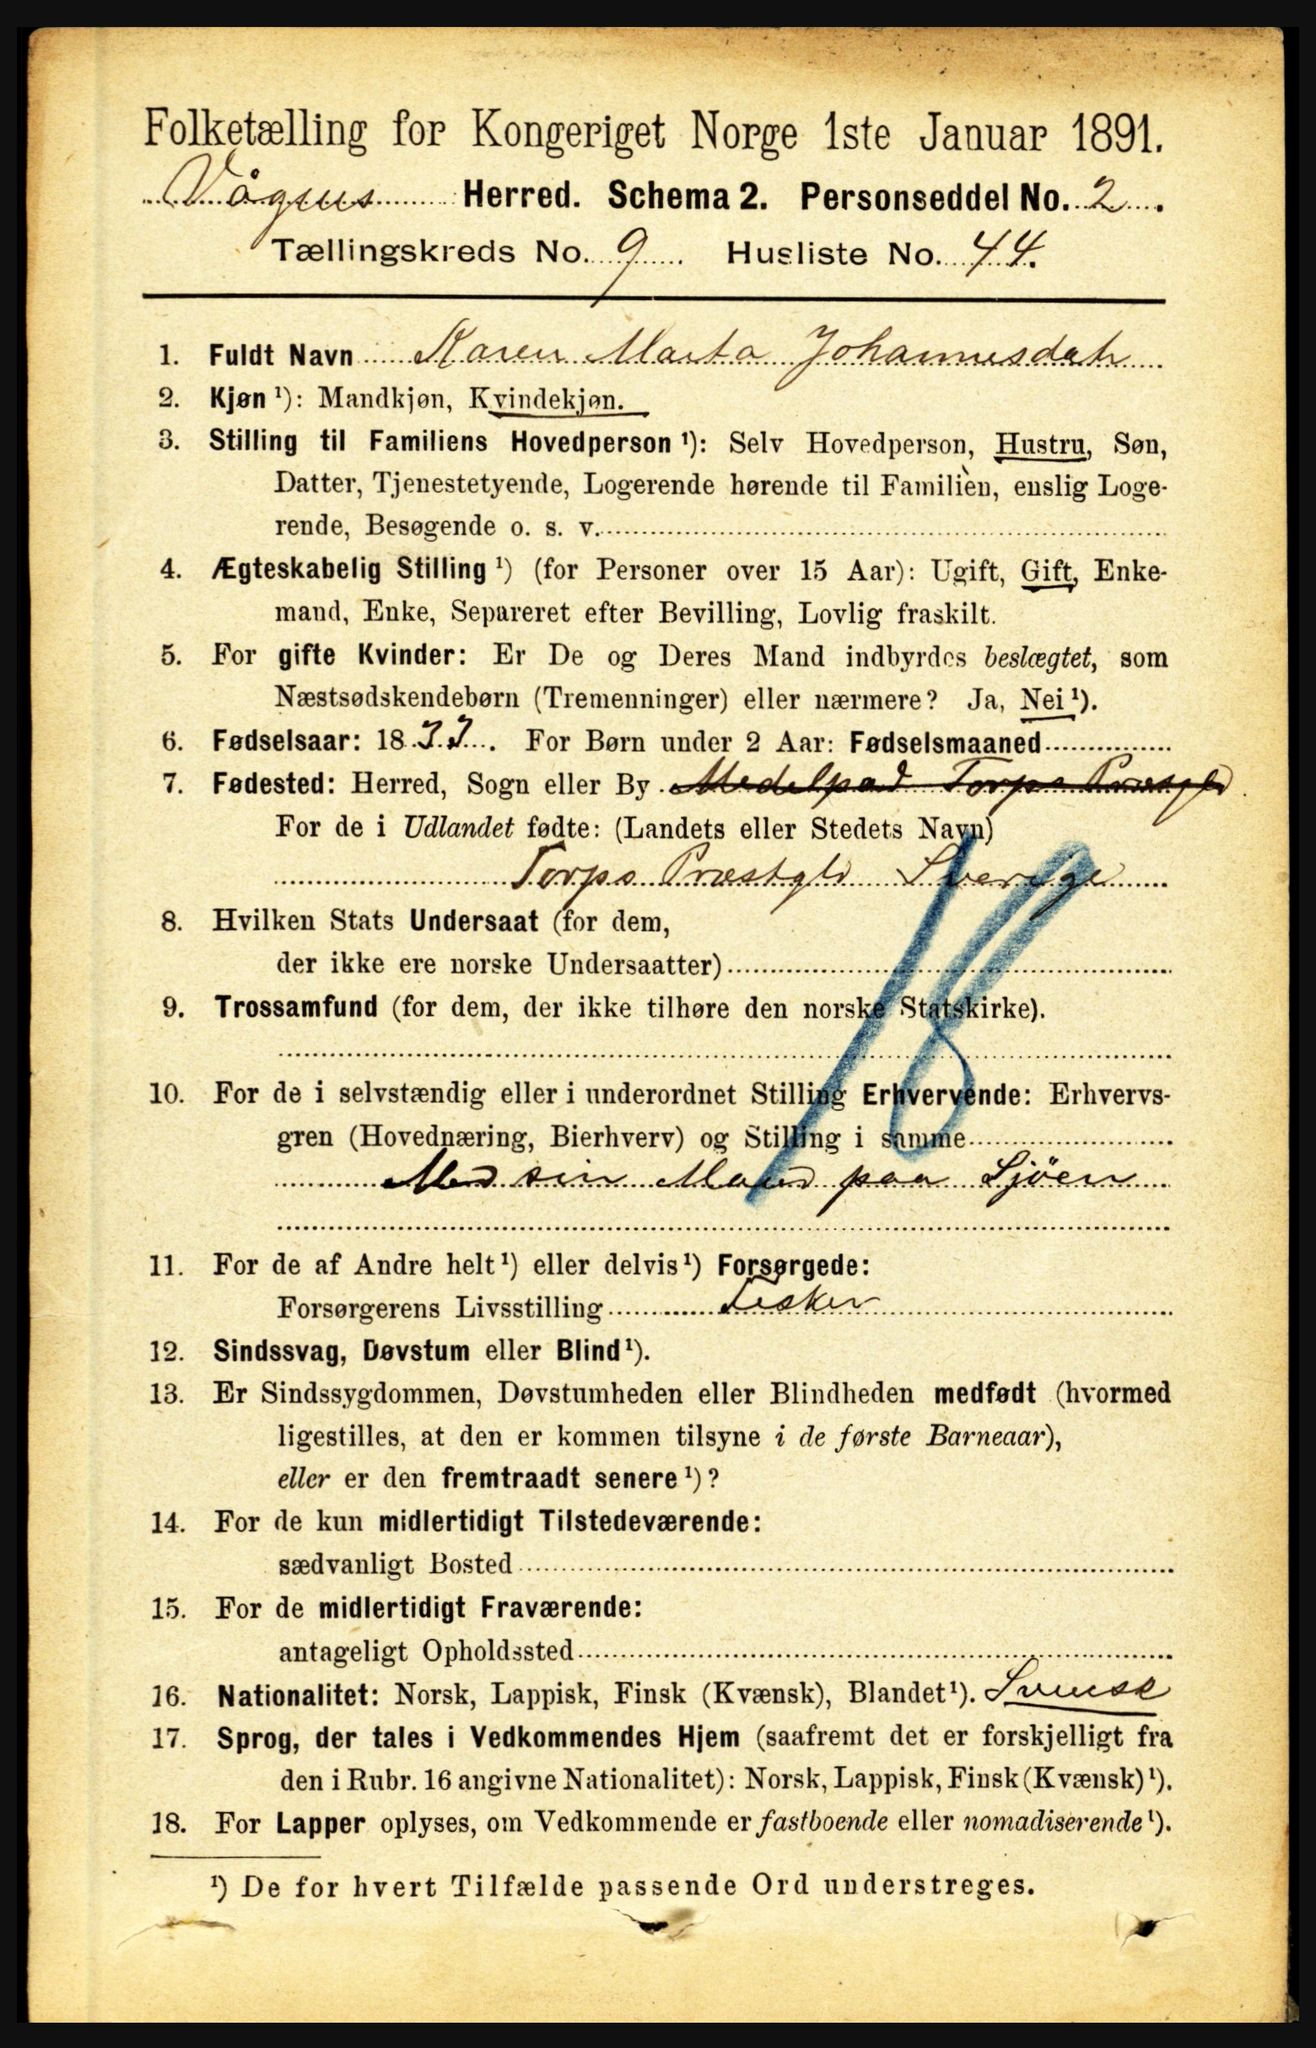 Folketælling for Kongeriget Norge 1ste Januar 1891.
Vågnes Herred. Schema 2. Personseddel No. 2.
Tællingskreds No. 9 Husliste No. 44.
1. Fuldt Navn Karen Marta Johannesdatr
2. Kjøn ¹): Mandkjøn, Kvindekjøn.
3. Stilling til Familiens Hovedperson ¹): Selv Hovedperson, Hustru, Søn,
Datter, Tjenestetyende, Logerende hørende til Familien, enslig Loge-
rende, Besøgende o. s. v.
4. Ægteskabelig Stilling ¹) (for Personer over 15 Aar): Ugift, Gift, Enke-
mand, Enke, Separeret efter Bevilling, Lovlig fraskilt.
5. For gifte Kvinder: Er De og Deres Mand indbyrdes beslægtet, som
Næstsødskendebørn (Tremenninger) eller nærmere? Ja, Nei ¹).
6. Fødselsaar: 1833. For Børn under 2 Aar: Fødselsmaaned
7. Fødested: Herred, Sogn eller By Medelpad Torps Præstgld
For de i Udlandet fødte: (Landets eller Stedets Navn)
Torps Præstgld Sverige
8. Hvilken Stats Undersaat (for dem,
der ikke ere norske Undersaatter)
9. Trossamfund (for dem, der ikke tilhøre den norske Statskirke).
18
10. For de i selvstændig eller i underordnet Stilling Erhvervende: Erhvervs-
gren (Hovednæring, Bierhverv) og Stilling i samme
Med sin Mand paa Sjöen
11. For de af Andre helt ¹) eller delvis ¹) Forsørgede:
Forsørgerens Livsstilling Fisker
12. Sindssvag, Døvstum eller Blind ¹).
13. Er Sindssygdommen, Døvstumheden eller Blindheden medfødt (hvormed
ligestilles, at den er kommen tilsyne i de første Barneaar),
eller er den fremtraadt senere ¹)?
14. For de kun midlertidigt Tilstedeværende:
sædvanligt Bosted
15. For de midlertidigt Fraværende:
antageligt Opholdssted
16. Nationalitet: Norsk, Lappisk, Finsk (Kvænsk), Blandet ¹). Svensk
17. Sprog, der tales i Vedkommendes Hjem (saafremt det er forskjelligt fra
den i Rubr. 16 angivne Nationalitet): Norsk, Lappisk, Finsk (Kvænsk) ¹).
18. For Lapper oplyses, om Vedkommende er fastboende eller nomadiserende ¹).
¹) De for hvert Tilfælde passende Ord understreges.